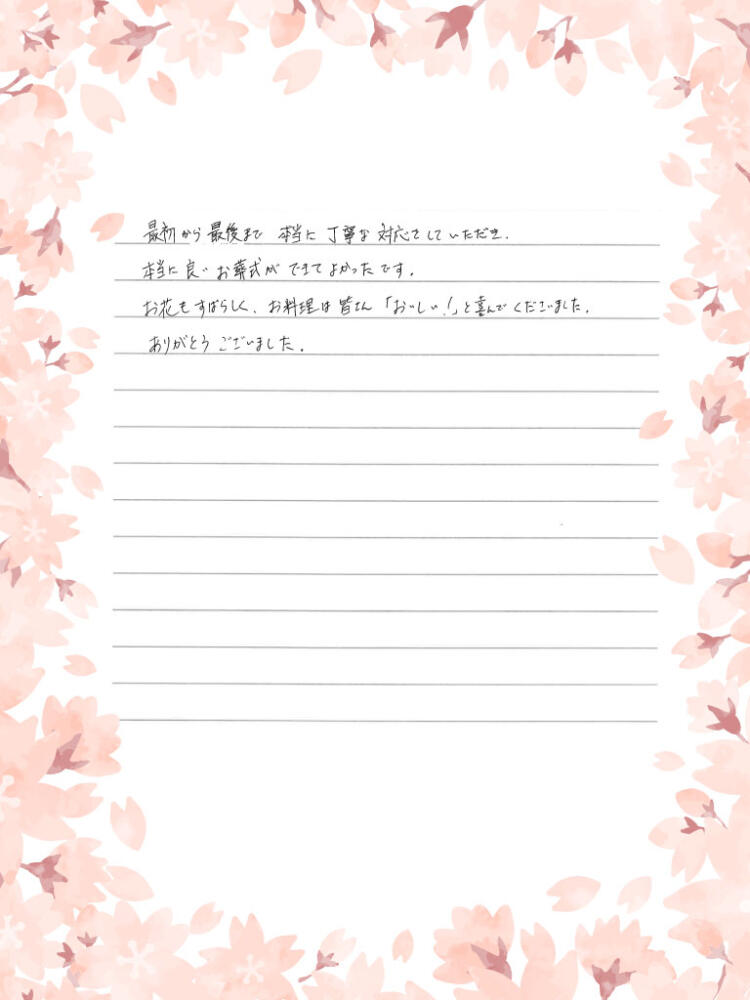 最初から最後まで 本当に丁寧な対応をしていただき、
本当に良いお葬式ができてよかったです。
お花もすばらしく、お料理は皆さん「おいしい!」と喜んでくださいました。
ありがとうございました。